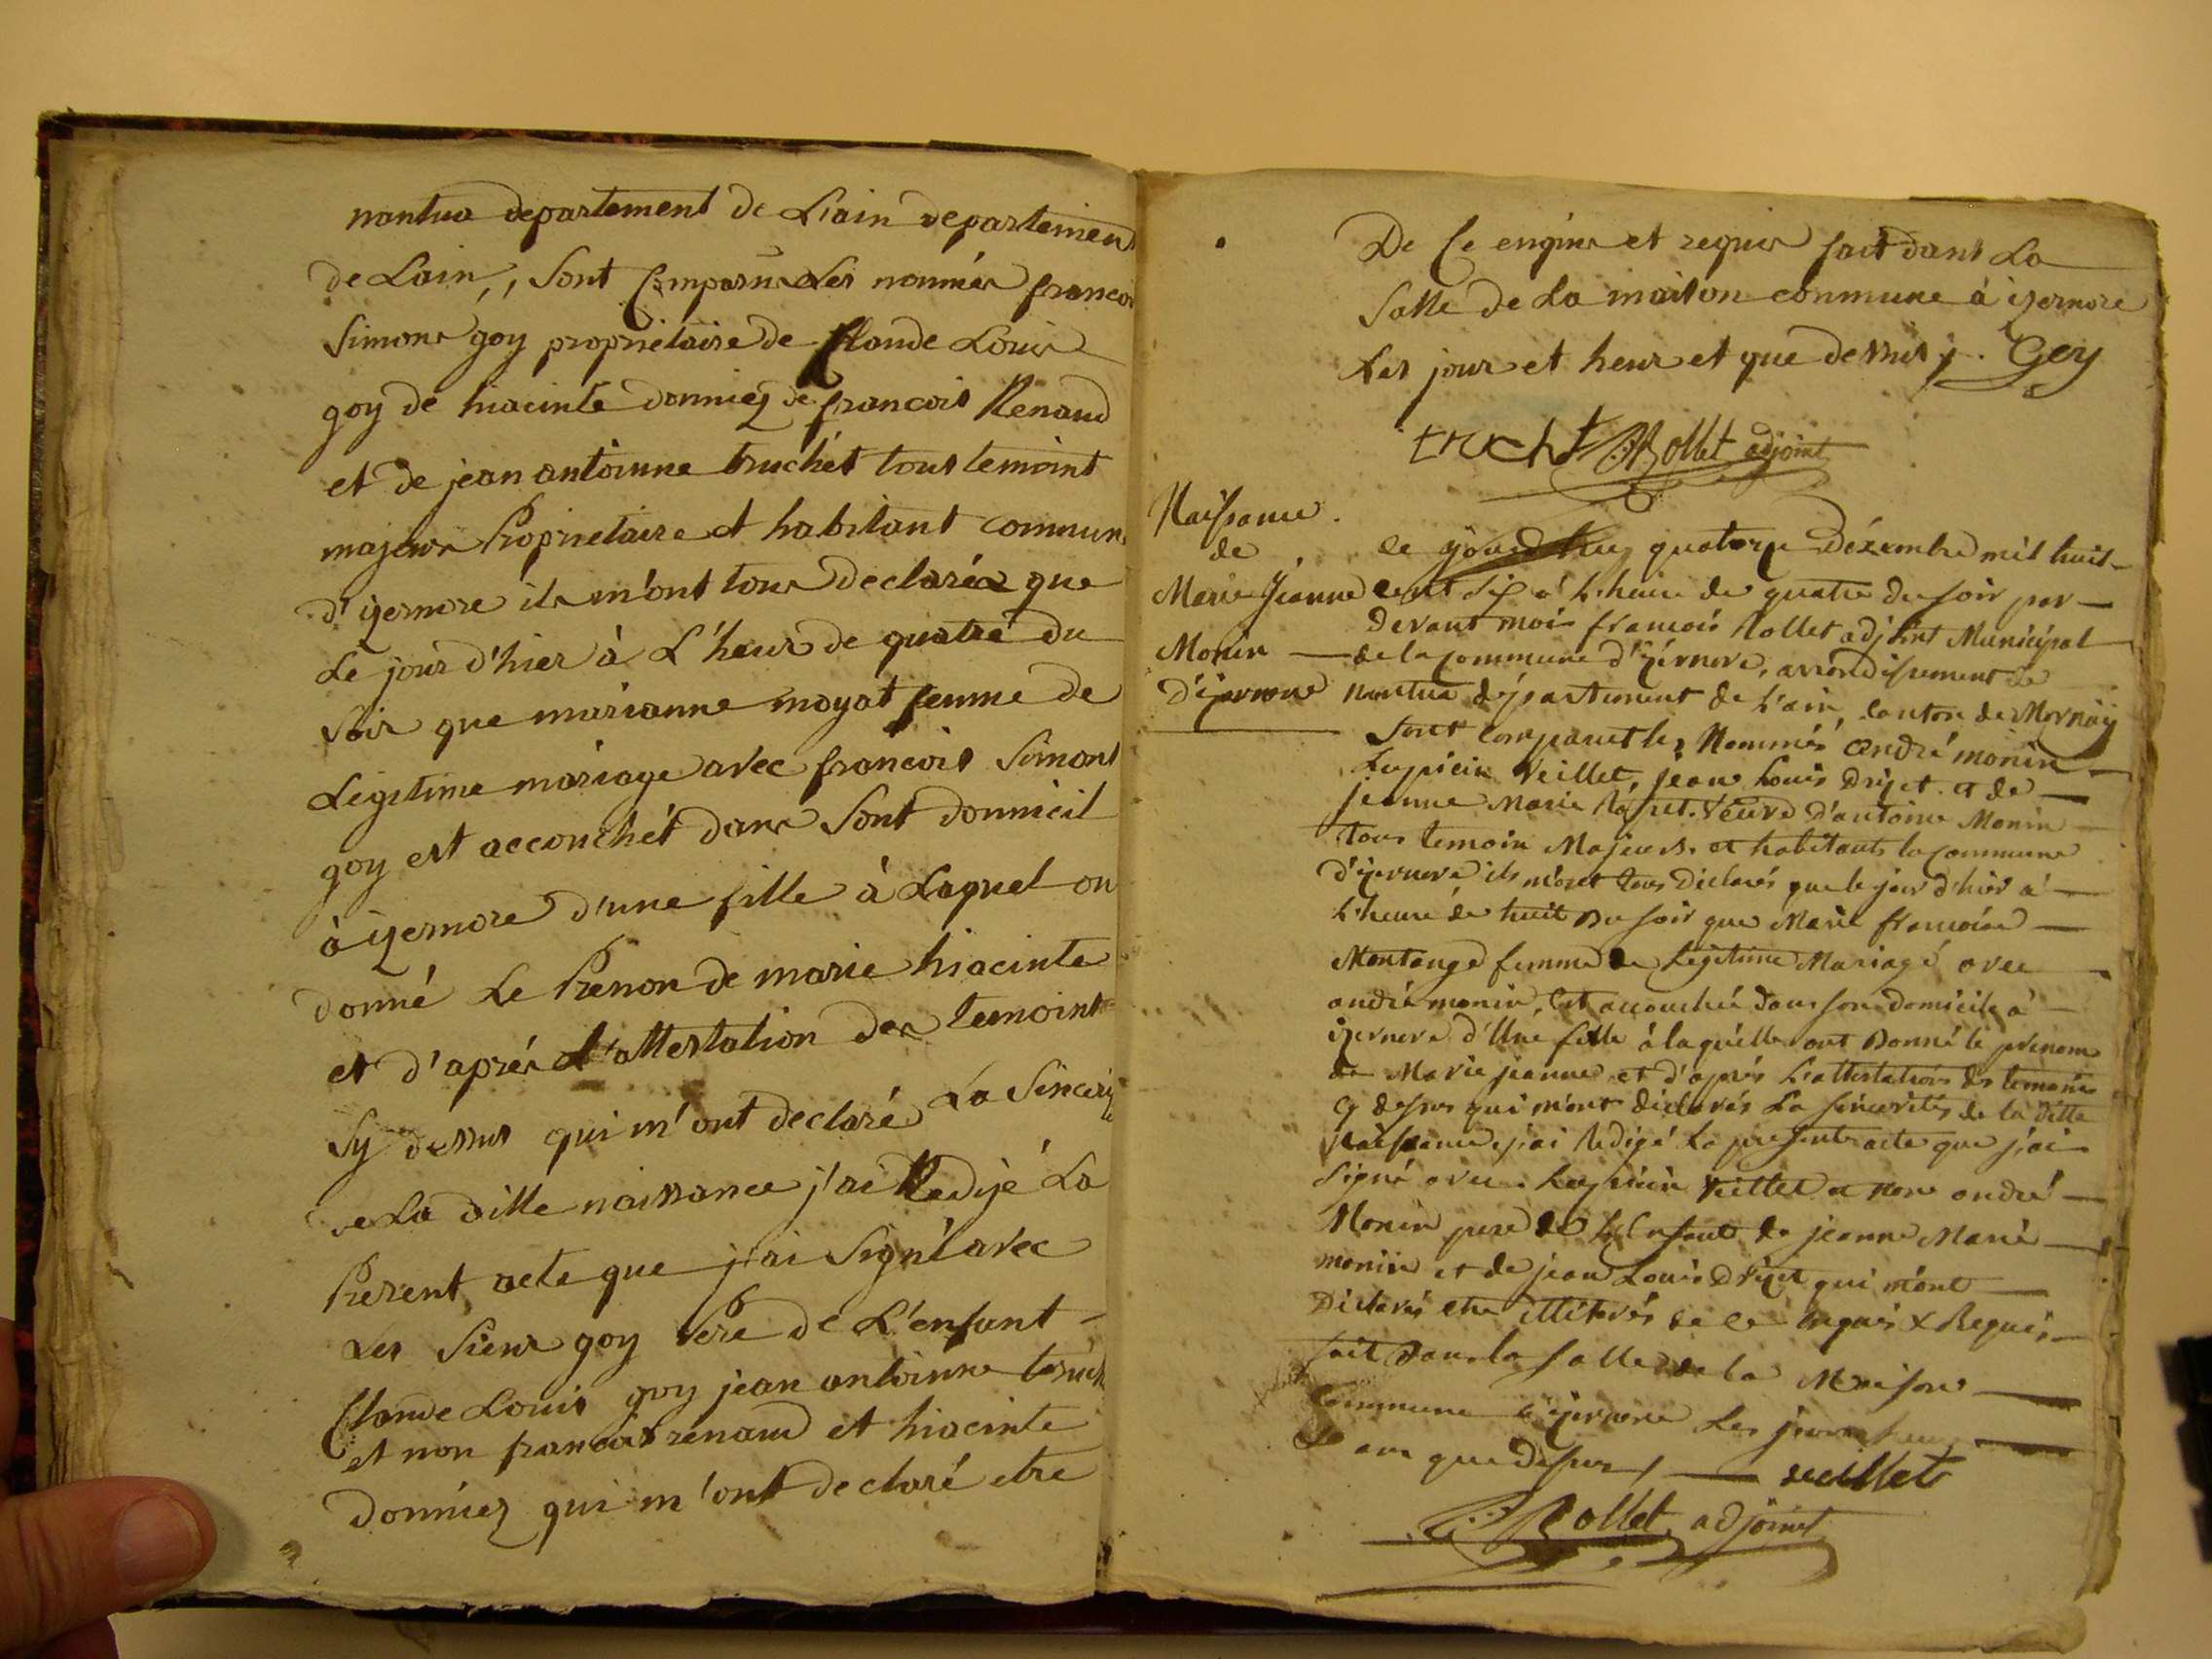 nantua departement de L'ain departement
de Lain,, Sont Comparus Les nommés francois
Simons goy proprietaire de Claude Louis
goy de hiacinte donniez de francois Renaud
et de jean antoinne truchét tous temoint
majeurs Proprietaire et habitant commune
d'izernore ils m'ont tous declarés que
Le jour d'hier à L'heur de quatre du
Soir que marianne moyat femme de
Légitime mariage avec francois Simons
goy est accouchét dans Sont donnicil
à izernore d'une fille à Laquel on
donné Le Prenon de marie hiacinte
et d'aprés L'attestation des temoint
Sy dessus qui m'ont declaré La Sincerité
de La ditte naissance j'ai Redijé La
Present acte que j'ai Signé avec
Les Sieur goy Pere de L'enfant
Claude Louis goy jean antoinne truch
et non francois renaud et hiacinte
donniez qui m'ont declaré etre
De Ce enqins et requis fait dans La
Salle de La maison commune à izernore
Les jour et heur et que dessus j. Goy
trucht Rollet adjoint
Naissance
de
Marie Jeanne
Monin
D'izernore
ce quatorze Dézembre mil huit
cent Six à L'heure de quatre du soir par
devant moi francois Rollet adjoint Municipal
de la Commune d'Izernore, arrondissement de
Nantua département de L'ain, canton de Mornay
Sont comparut les Nommés andré monin
Lupicin Veillet, jean Louis Drizet et de
jeanne Marie veuve d'antoine Monin
tous temoin Majeurs et habitants la commune
d'izernore ils m'ont tous Déclarés que le jour d'hier a
L'heure de huit Du soir que Marie francoise
Montange femme de Légitime Mariage avec
andré monin, Est accouchée dans son domicile à
izernore d'Une fille à laquelle ont Donné le prenom
de Marie jeanne et d'aprés L'attestation des temoins
Cy dessus qui m'ont déclarés La sincerités de la ditte
Naissance j'ai Redigé La presente acte que j'ai
Signé avec Lupicin Veillet et Non andré
Monin pere de L'Enfant de jeanne Marie
monin et de jean Louis Drizet qui m'ont
Déclarés etre illitérés de ce enquis & Requis
fait dans la salle de la Maison
Commune d'izernore Les jour heur
et an que dessus / veillet
Rollet adjoint